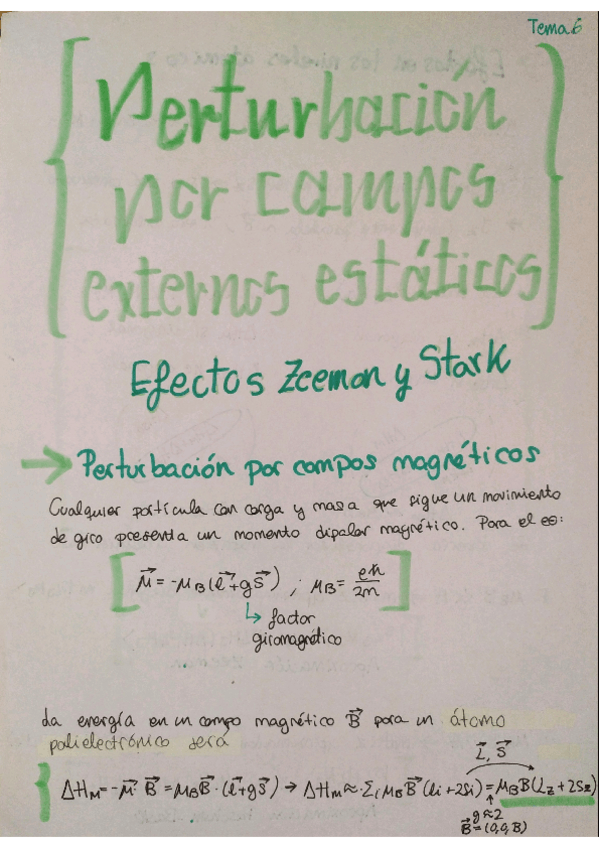 Tema 6
Perturbación
por campos
externos estáticos
Efectos Zeeman y Stark
→ Perturbación por campos magnéticos
Cualquier partícula con carga y masa que sigue un movimiento
de giro presenta un momento dipolar magnético. Para el e⊖:
[ μ⃗ = -μB(ℓ⃗+gs⃗) ; μB = eħ/2m ]
↳ factor
giromagnético
La energía en un campo magnético B⃗ para un átomo
polielectrónico será
L⃗, S⃗
ΔHM = -μ⃗·B⃗ = μB B⃗·(ℓ⃗+gs⃗) → ΔHM ≈ ·Σi μB B⃗ (ℓi+2si) = μB B(Lz+2Sz)
g≈2
B⃗=(0,0,B)